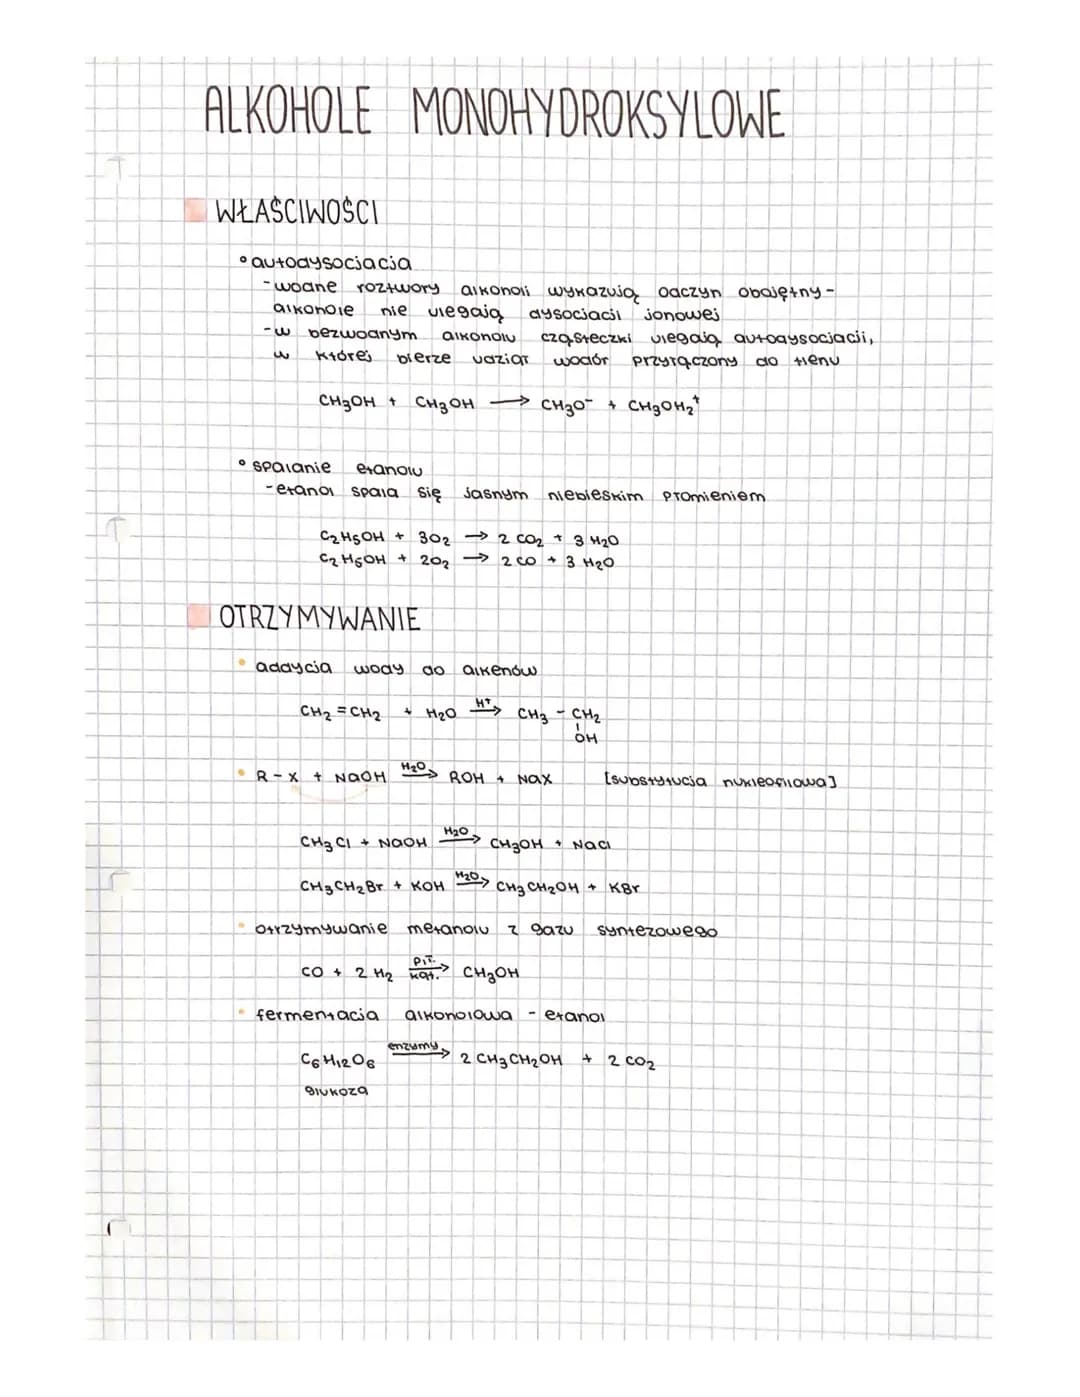 ALKOHOLE MONOHYDROKSYLOWE
WŁAŚCIWOŚCI
• autodysocjacja
- wodne roztwory alkoholi wykazują odczyn obojętny -
alkohole nie ulegają dysocjacji jonowej
- w bezwodnym alkoholu cząsteczki ulegają autodysocjacji,
w której bierze udział wodór przyłączony do tlenu
CH₃OH + CH₃OH ⟶ CH₃O⁻ + CH₃OH₂⁺
• spalanie etanolu
- etanol spala się jasnym niebieskim płomieniem
C₂H₅OH + 3O₂ → 2 CO₂ + 3 H₂O
C₂H₅OH + 2O₂ → 2 CO + 3 H₂O
OTRZYMYWANIE
• addycja wody do alkenów
CH₂=CH₂ + H₂O H⁺→ CH₃ - CH₂
OH
• R-X + NaOH H₂O→ ROH + NaX [substytucja nukleofilowa]
CH₃Cl + NaOH H₂O→ CH₃OH + NaCl
CH₃CH₂Br + KOH H₂O→ CH₃CH₂OH + KBr
• otrzymywanie metanolu z gazu syntezowego
CO + 2 H₂ p,T. kat.→ CH₃OH
• fermentacja alkoholowa - etanol
C₆H₁₂O₆ enzymy→ 2 CH₃CH₂OH + 2 CO₂
glukoza